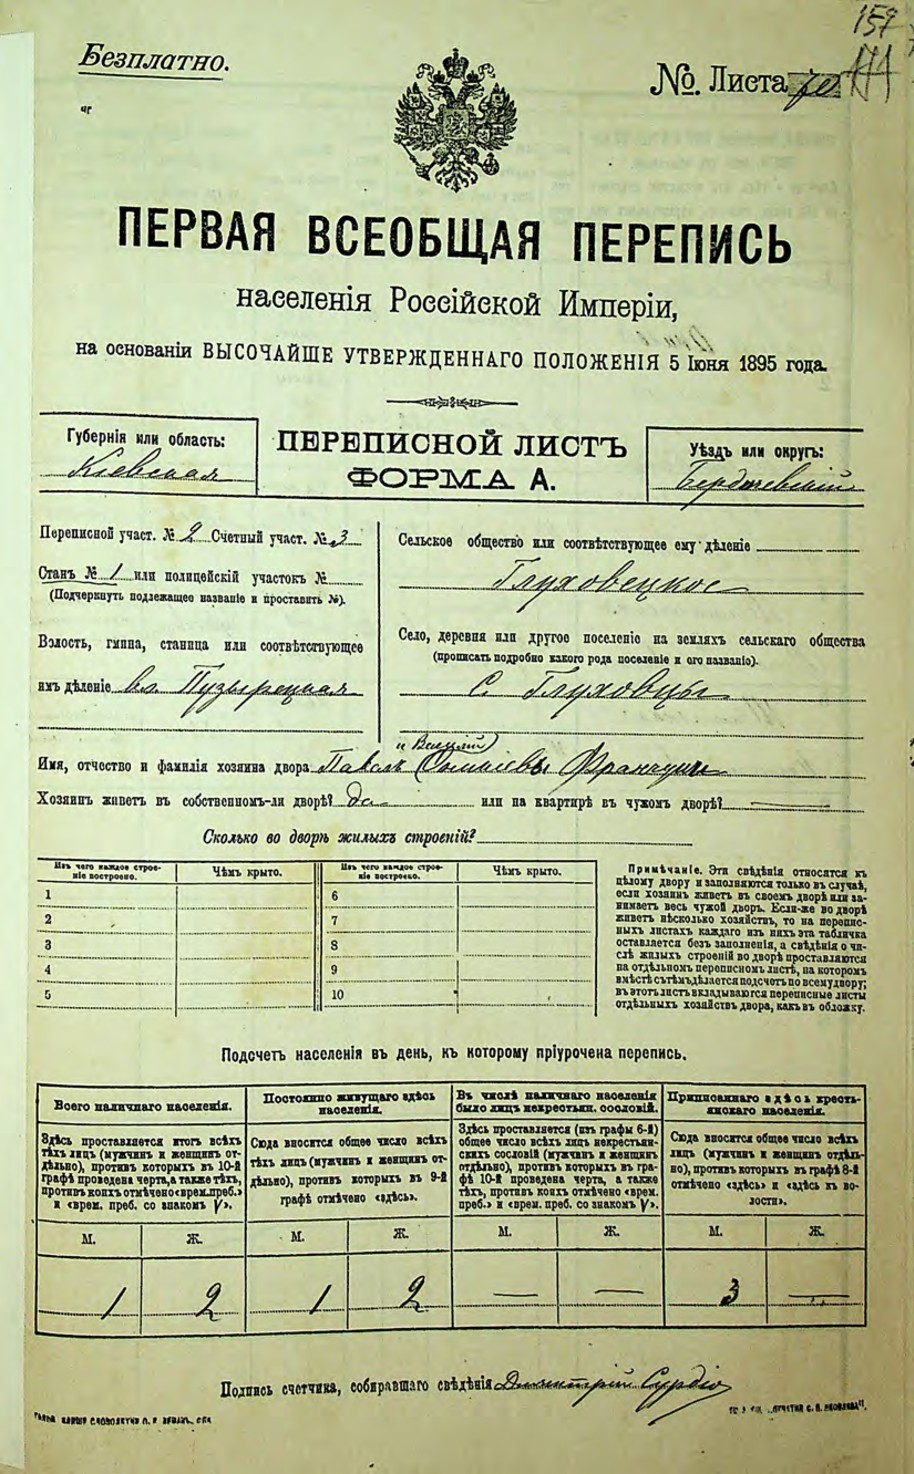 157
Безплатно.
№. Листа
ПЕРВАЯ ВСЕОБЩАЯ ПЕРЕПИСЬ
населенія Россійской Имперіи,
на основаніи ВЫСОЧАЙШЕ УТВЕРЖДЕННАГО ПОЛОЖЕНІЯ 5 Іюня 1895 года.
Губернія или область:
Кіевская
ПЕРЕПИСНОЙ ЛИСТЪ
ФОРМА А.
Уѣздъ или округъ:
Бердичевскій
Переписной участ. № 2 Счетный участ. № 3
Станъ № 1 или полицейскій участокъ №
(Подчеркнуть подлежащее названіе и проставить №).
Волость, гмина, станица или соотвѣтствующее
имъ дѣленіе вл Пузырецкая
Сельское общество или соотвѣтствующее ему дѣленіе
Глуховецкое
Село, деревня или другое поселеніе на земляхъ сельскаго общества
(прописать подробно какого рода поселеніе и его названіе).
С. Глуховцы
Имя, отчество и фамилія хозяина двора
Хозяинъ живетъ въ собственномъ-ли дворѣ? да или на квартирѣ въ чужомъ дворѣ? —
Сколько во дворѣ жилыхъ строеній?
Изъ чего каждое строеніе построено. Чѣмъ крыто. Изъ чего каждое строеніе построено. Чѣмъ крыто.
1 6
2 7
3 8
4 9
5 10
Примѣчаніе. Эти свѣдѣнія относятся къ
цѣлому двору и заполняются только въ случаѣ,
если хозяинъ живетъ въ своемъ дворѣ или за-
нимаетъ весь чужой дворъ. Если-же во дворѣ
живетъ нѣсколько хозяйствъ, то на перепис-
ныхъ листахъ каждаго изъ нихъ эта табличка
оставляется безъ заполненія, а свѣдѣнія о чи-
слѣ жилыхъ строеній во дворѣ проставляются
на отдѣльномъ переписномъ листѣ, на которомъ
вмѣстѣ съ тѣмъ дѣлается подсчетъ по всему двору;
въ этотъ листъ вкладываются переписные листы
отдѣльныхъ хозяйствъ двора, какъ въ обложку.
Подсчетъ населенія въ день, къ которому пріурочена перепись.
Всего наличнаго населенія.
Здѣсь проставляется итогъ всѣхъ
тѣхъ лицъ (мужчинъ и женщинъ от-
дѣльно), противъ которыхъ въ 10-й
графѣ проведена черта, а также тѣхъ,
противъ коихъ отмѣчено «врем. преб.»
и «врем. преб. со знакомъ V».
Постоянно живущаго здѣсь
населенія.
Сюда вносится общее число всѣхъ
тѣхъ лицъ (мужчинъ и женщинъ от-
дѣльно), противъ которыхъ въ 9-й
графѣ отмѣчено «здѣсь».
Въ числѣ наличнаго населенія
было лицъ некрестьян. сословій.
Здѣсь проставляется (изъ графы 6-й)
общее число всѣхъ лицъ некрестьян-
скихъ сословій (мужчинъ и женщинъ
отдѣльно), противъ которыхъ въ гра-
фѣ 10-й проведена черта, а также
тѣхъ, противъ коихъ отмѣчено «врем.
преб.» и «врем. преб. со знакомъ V».
Приписаннаго здѣсь кресть-
янскаго населенія.
Сюда вносится общее число всѣхъ
лицъ (мужчинъ и женщинъ отдѣль-
но), противъ которыхъ въ графѣ 8-й
отмѣчено «здѣсь» и «здѣсь къ во-
лости».
М. Ж. М. Ж. М. Ж. М. Ж.
1 2 1 2 — — 3 —
Подпись счетчика, собиравшаго свѣдѣнія Димитрій